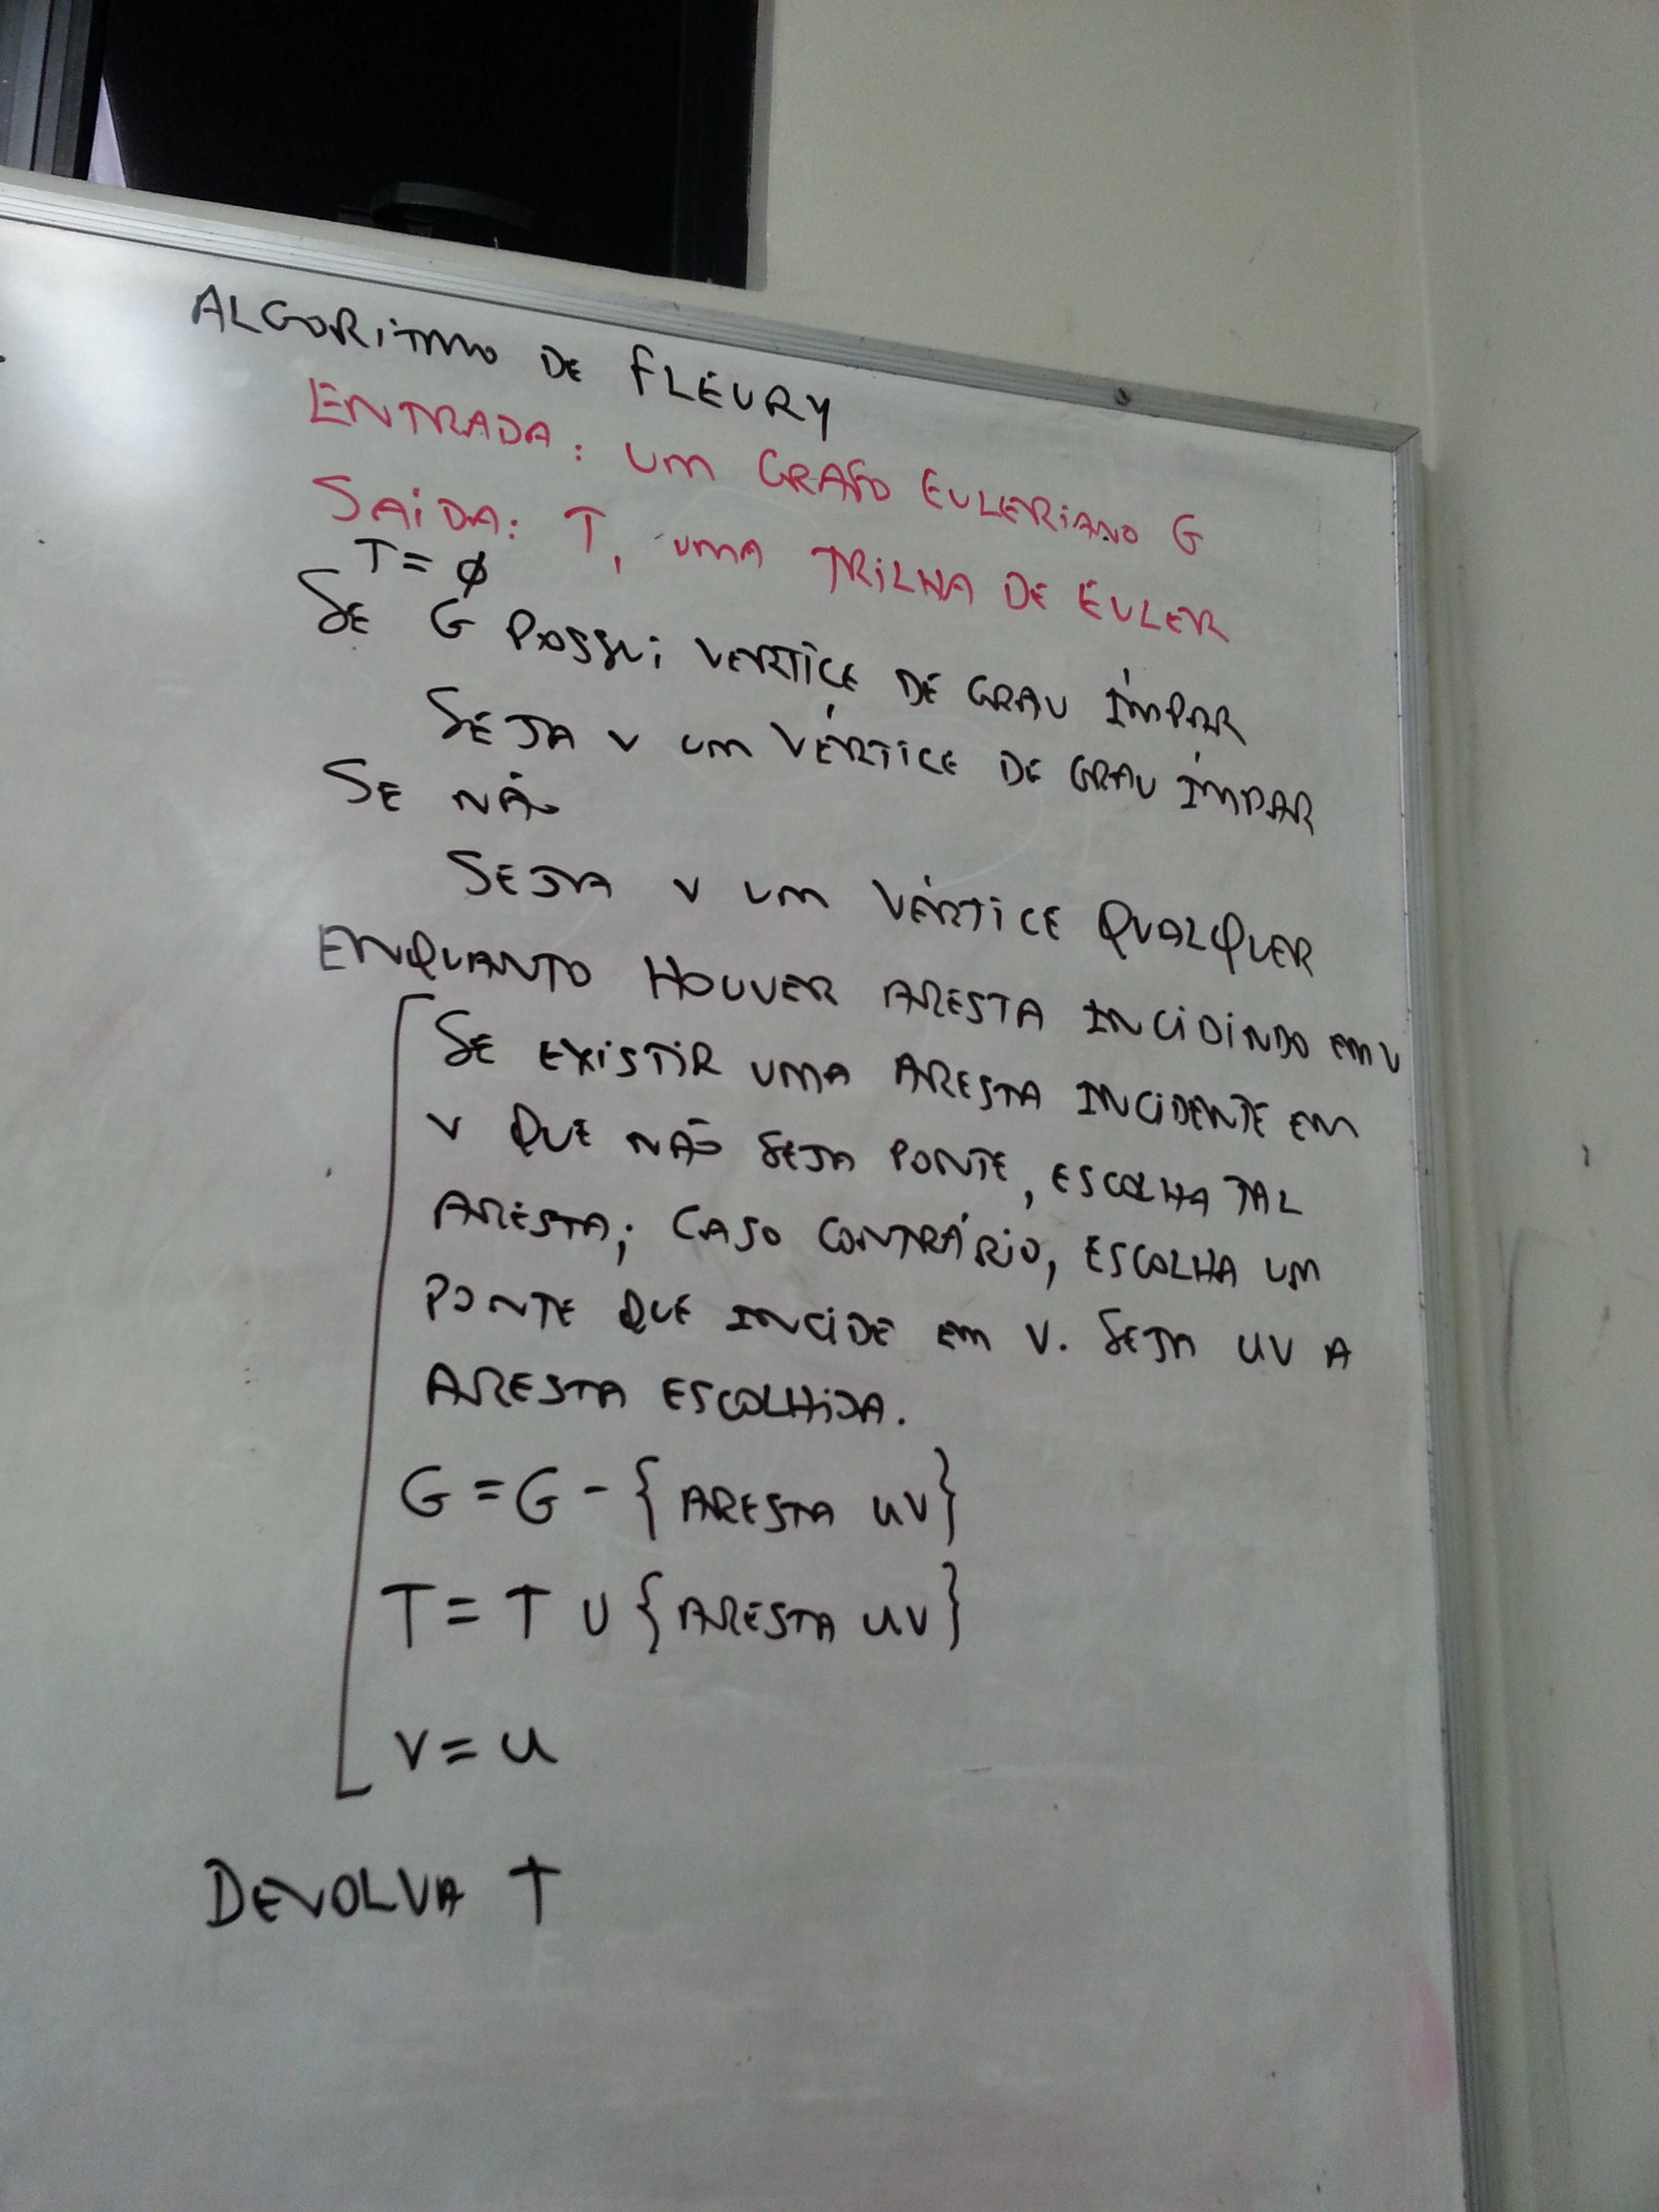 ALGORITMO DE FLEURY
ENTRADA: UM GRAFO EULERIANO G
SAÍDA: T, UMA TRILHA DE EULER
T = ∅
SE G POSSUI VÉRTICE DE GRAU ÍMPAR
SEJA V UM VÉRTICE DE GRAU ÍMPAR
SE NÃO
SEJA V UM VÉRTICE QUALQUER
ENQUANTO HOUVER ARESTA INCIDINDO EM V
SE EXISTIR UMA ARESTA INCIDENTE EM
V QUE NÃO SEJA PONTE, ESCOLHA TAL
ARESTA; CASO CONTRÁRIO, ESCOLHA UM
PONTE QUE INCIDE EM V. SEJA UV A
ARESTA ESCOLHIDA.
G = G - {ARESTA UV}
T = T ∪ {ARESTA UV}
V = U
DEVOLVA T